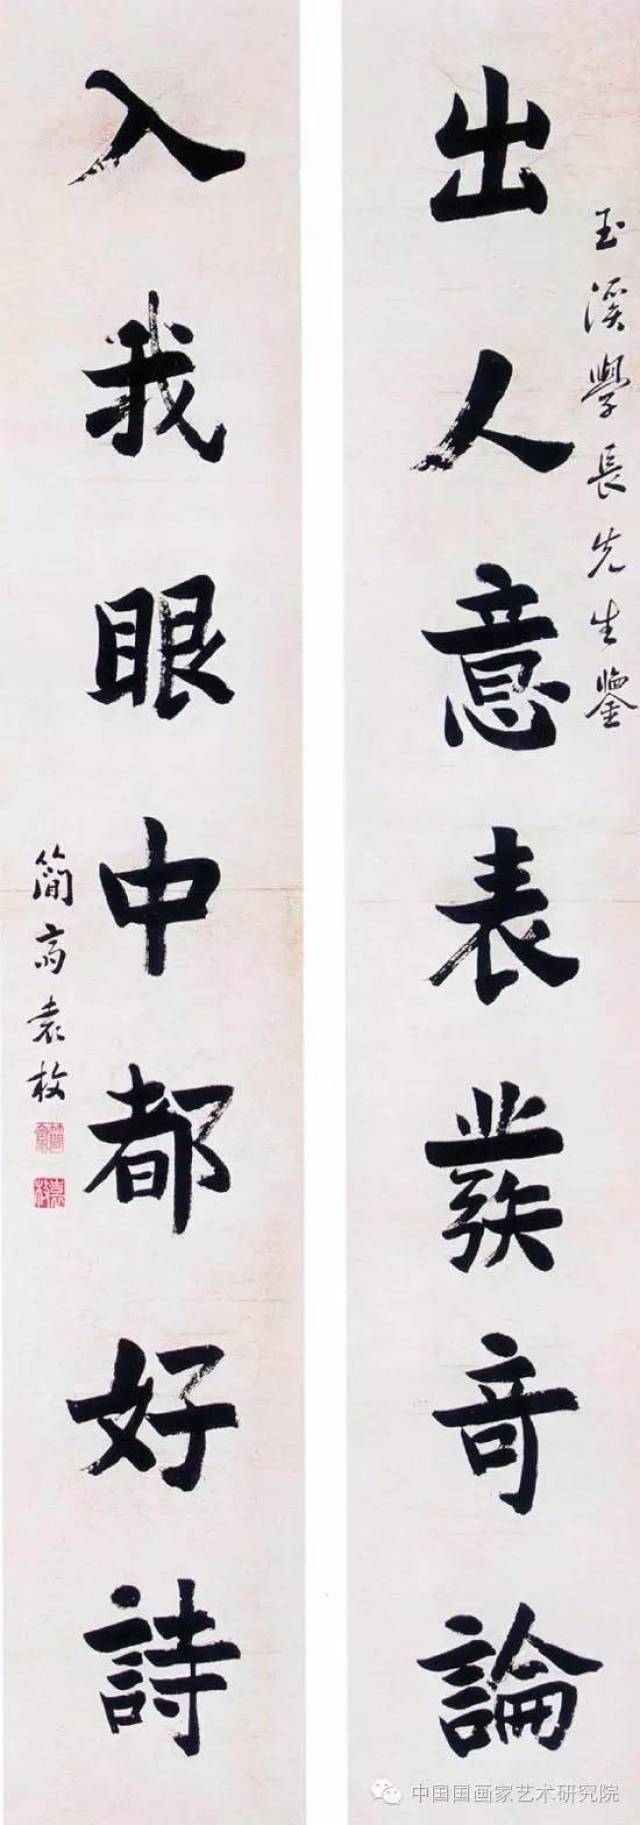 玉溪學長先生鑒
出人意表發奇論
入我眼中都好詩
簡齋袁枚
簡齋
袁枚
中国国画家艺术研究院